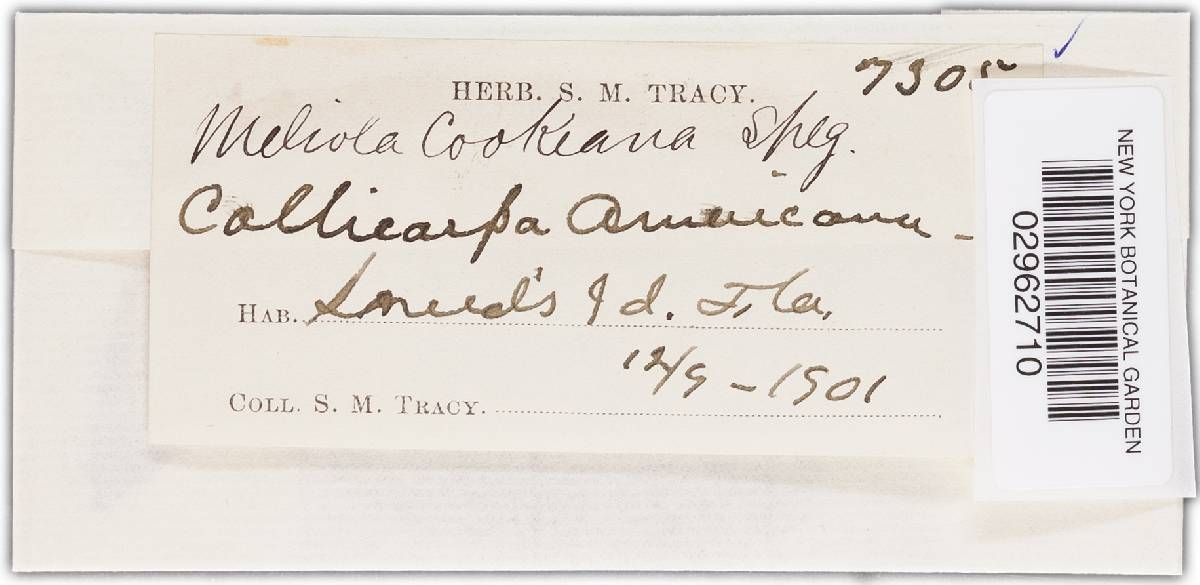 7305
HERB. S. M. TRACY.
Meliola Cookeana Speg.
Callicarpa Americana -
HAB. Snead's Id. Fla.
12/9 - 1901
COLL. S. M. TRACY.
NEW YORK BOTANICAL GARDEN
02962710